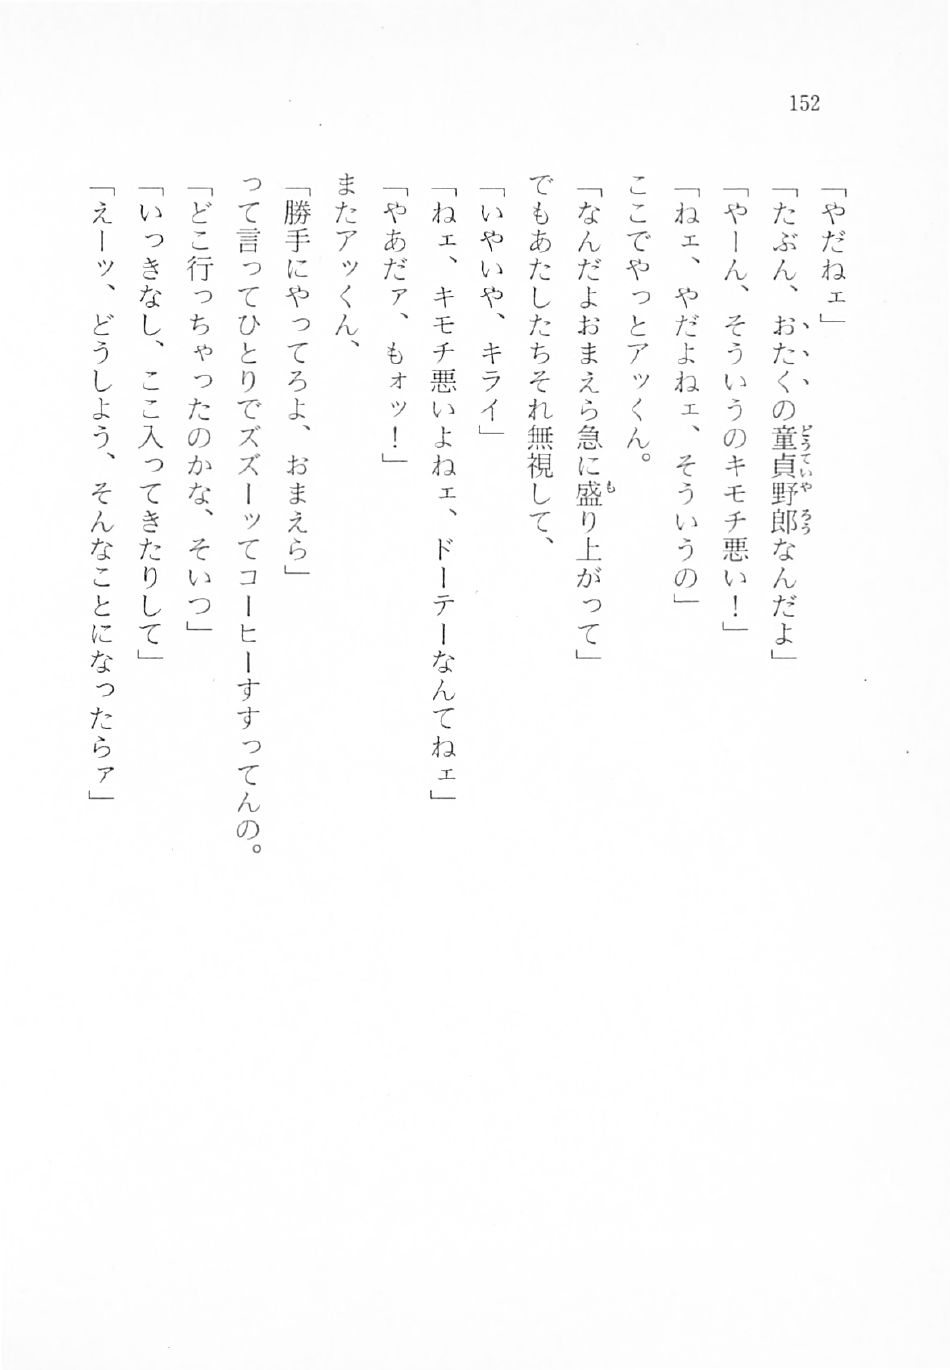 152
「やだねェ」
「たぶん、おたくの童貞野郎なんだよ」
「やーん、そういうのキモチ悪い！」
「ねェ、やだよねェ、そういうの」
ここでやっとアッくん。
「なんだよおまえら急に盛り上がって」
でもあたしたちそれ無視して、
「いやいや、キライ」
「ねェ、キモチ悪いよねェ、ドーテーなんてねェ」
「やあだァ、もォッ！」
またアッくん、
「勝手にやってろよ、おまえら」
って言ってひとりでズズーッてコーヒーすすってんの。
「どこ行っちゃったのかな、そいつ」
「いっきなし、ここ入ってきたりして」
「えーッ、どうしよう、そんなことになったらァ」